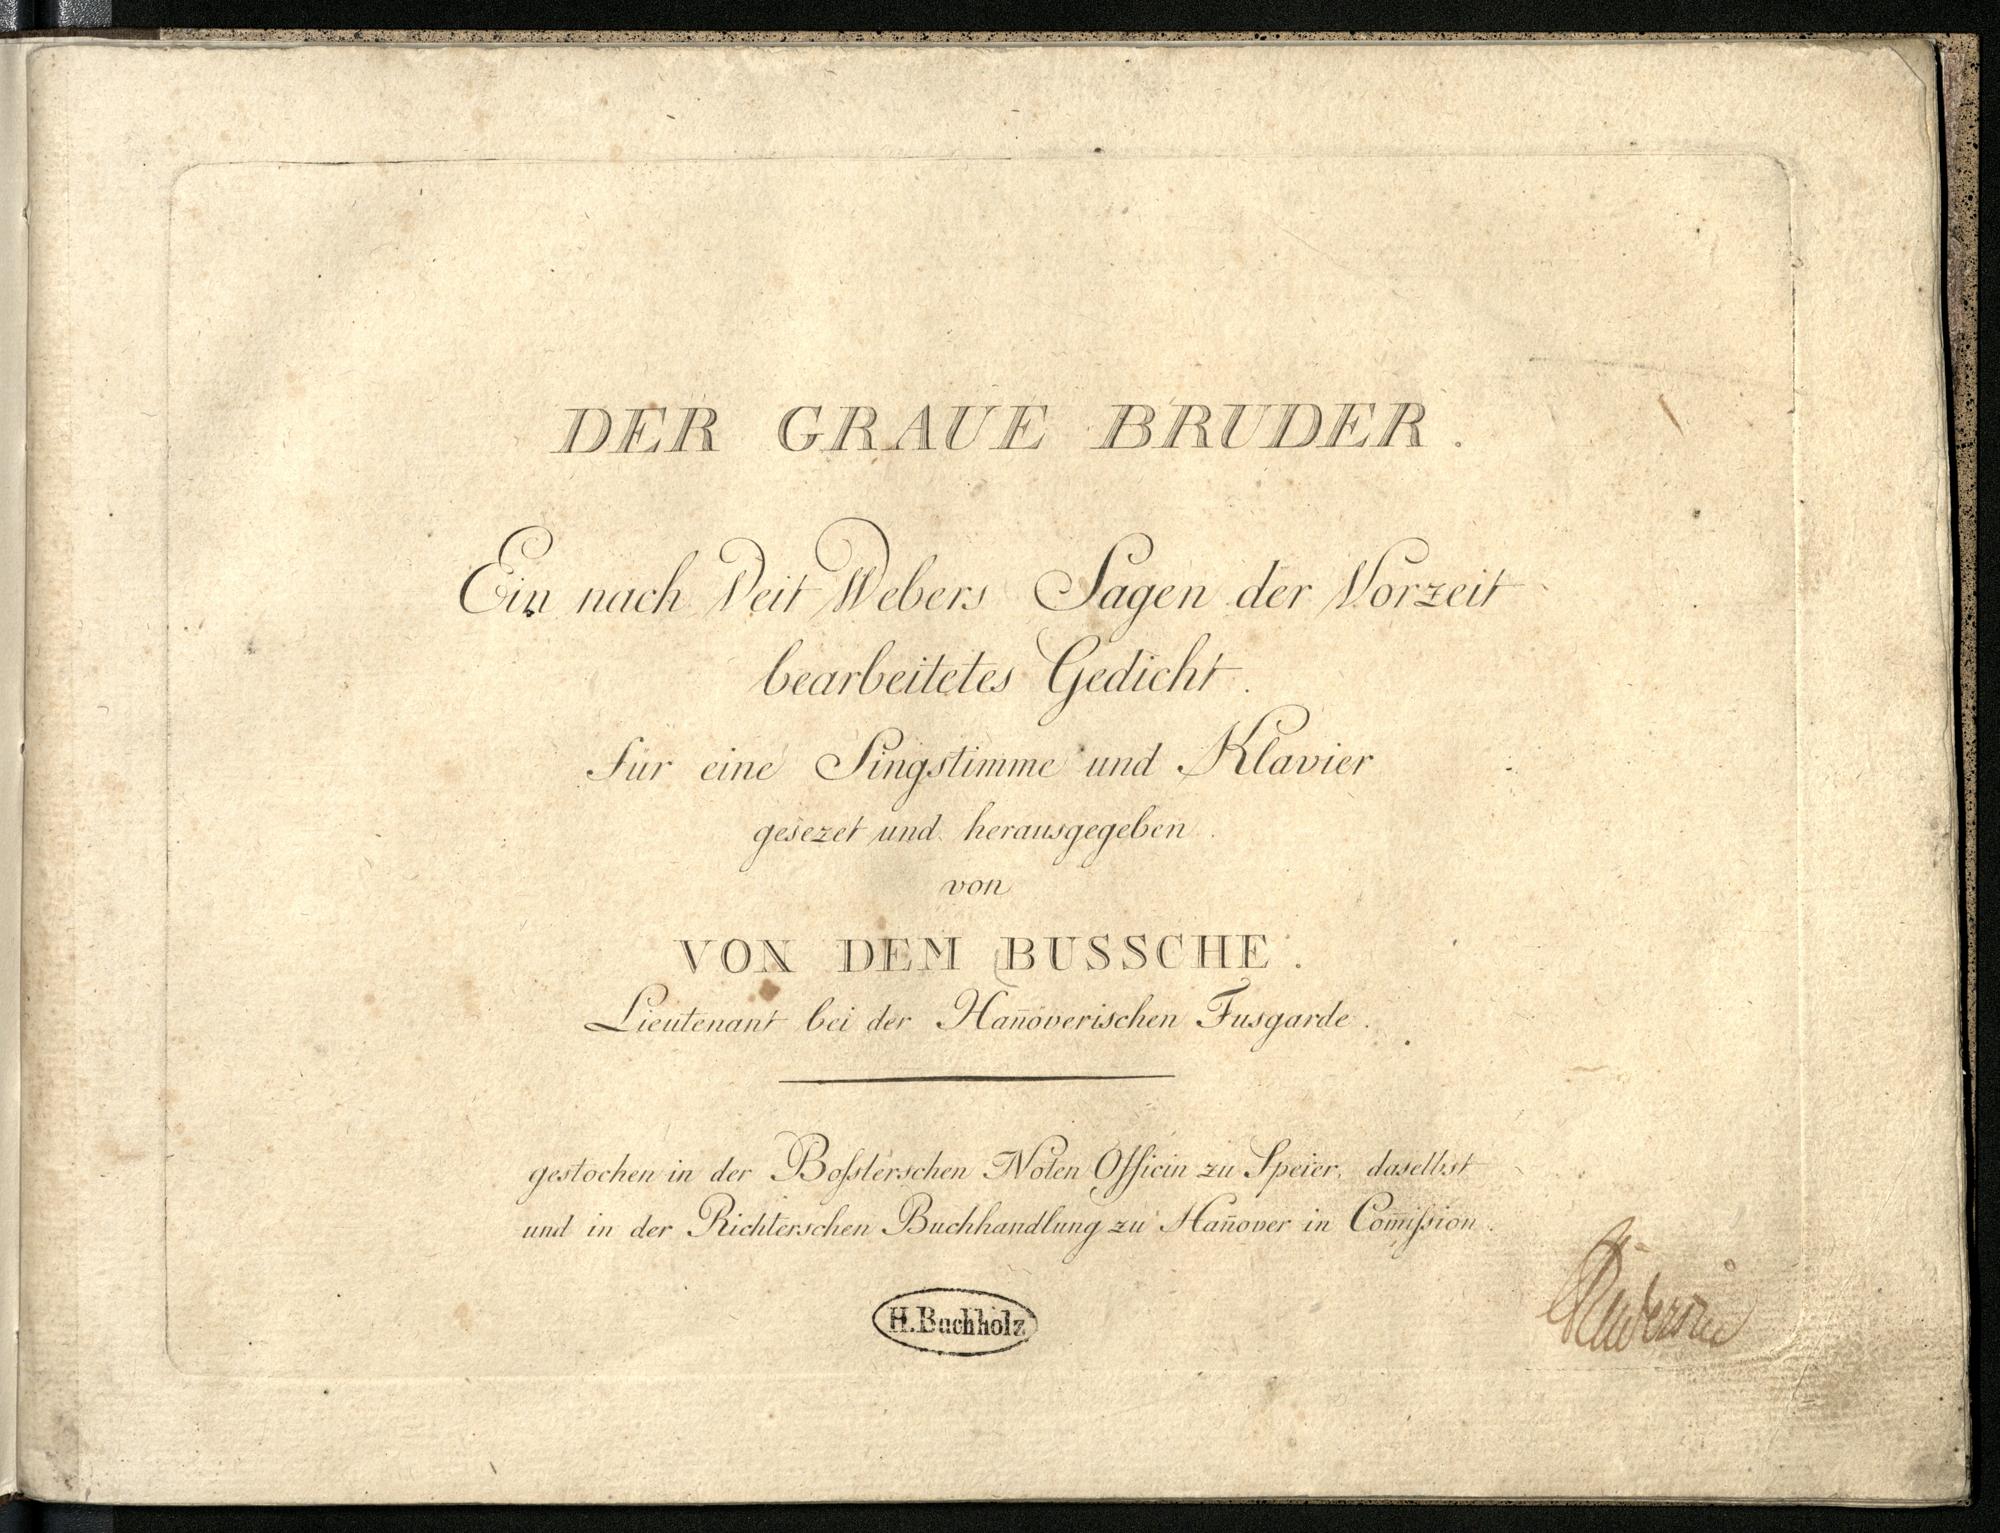 DER GRAUE BRUDER.
Ein nach Veit Webers Sagen der Vorzeit
bearbeitetes Gedicht.
für eine Singstimme und Klavier
gesezet und herausgegeben.
von
VON DEM BUSSCHE.
Lieutenant bei der Hañoverischen Fusgarde.
gestochen in der Boſslerschen Noten Officin zu Speier, daselbst
und in der Richterschen Buchhandlung zu Hañover in Com̄iſsion.
H. Buchholz